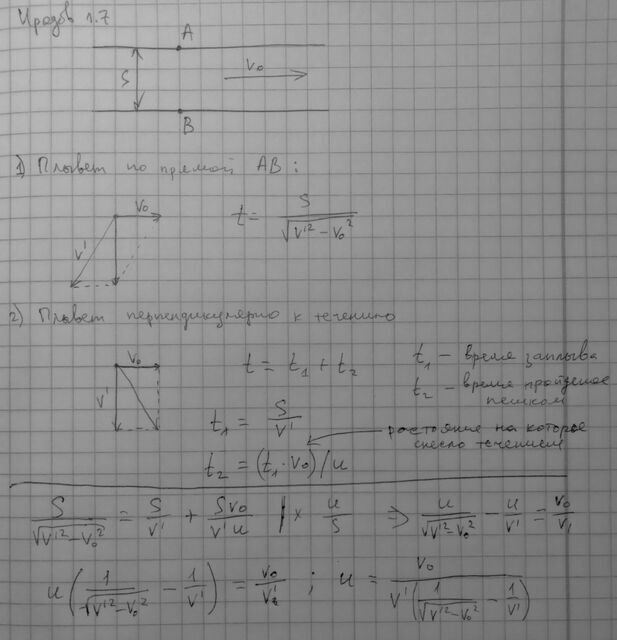 Иродов 1.7
A
S
V₀
B
1) Плывет по прямой AB:
V₀
V'
t = S / √(V'² − V₀²)
2) Плывет перпендикулярно к течению
V₀
V'
t = t₁ + t₂
t₁ – время заплыва
t₂ – время пройденое пешком
t₁ = S / V'
t₂ = (t₁ · V₀) / u
растояние на которое снесло течением
S / √(V'² − V₀²) = S / V' + S V₀ / V' u | × u / S ⇒ u / √(V'² − V₀²) − u / V' = V₀ / V'
u (1 / √(V'² − V₀²) − 1 / V') = V₀ / V' ; u = V₀ / V' (1 / √(V'² − V₀²) − 1 / V')